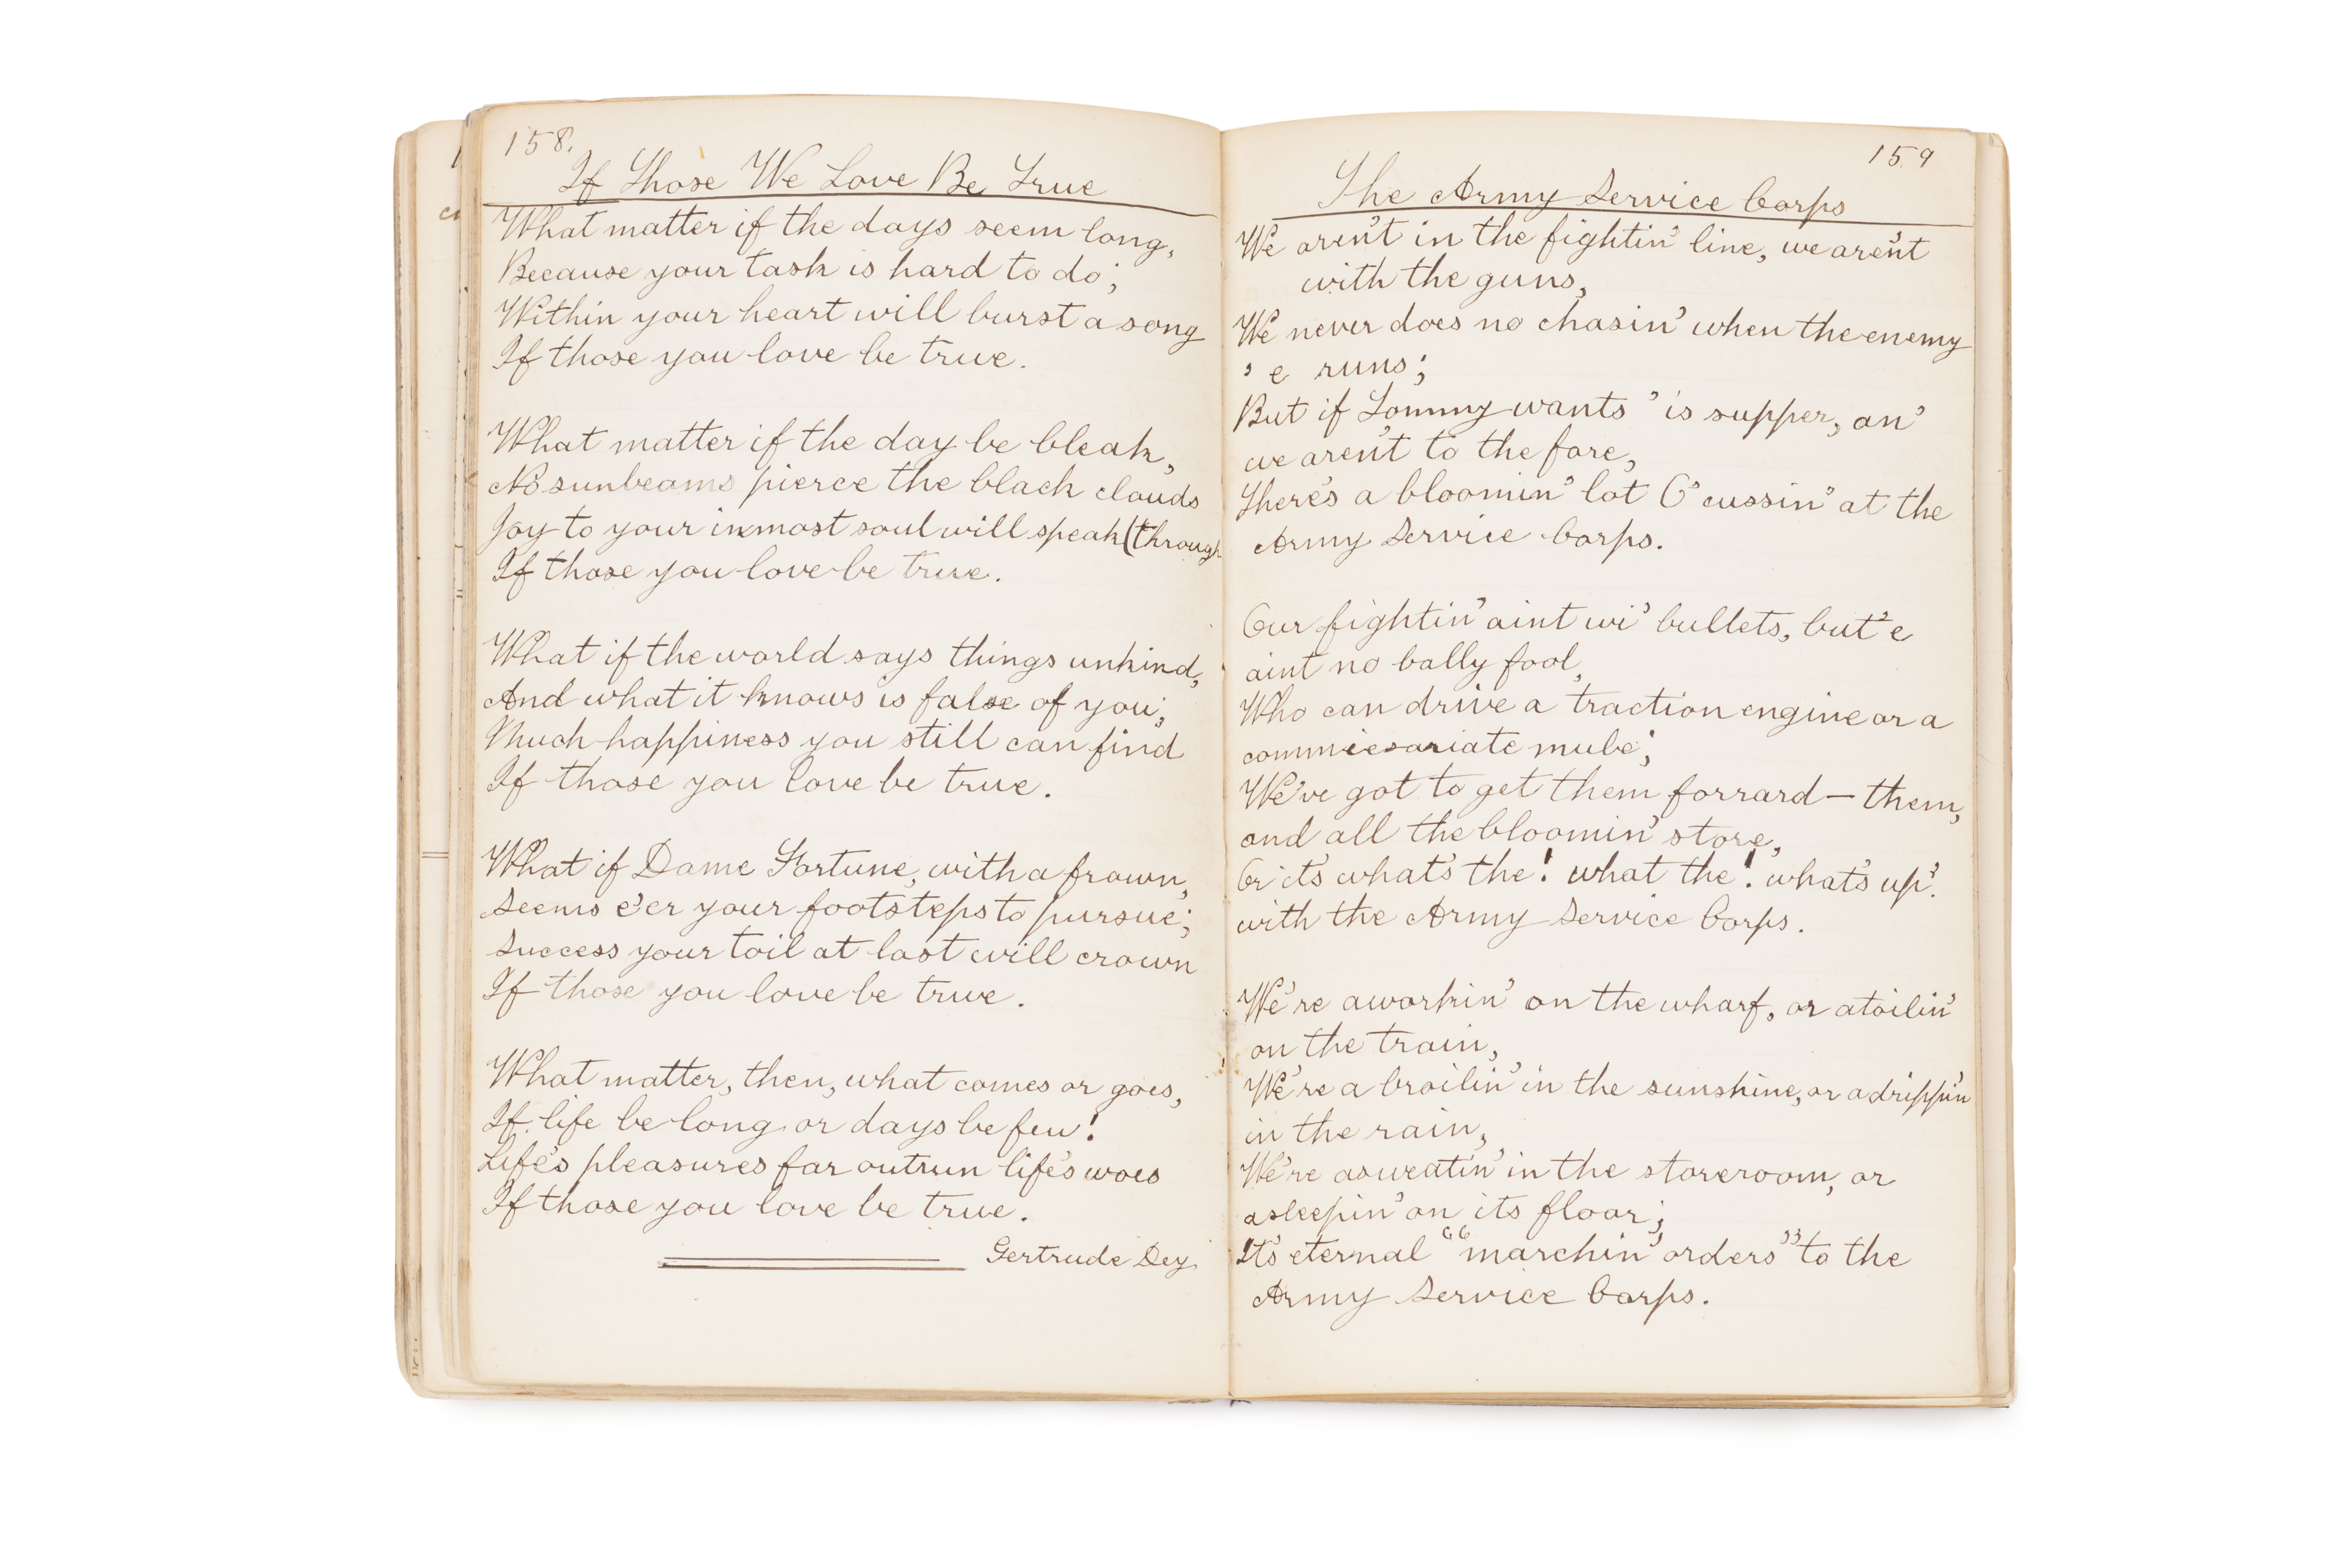 158.
If Those We Love Be True
What matter if the days seem long,
Because your task is hard to do;
Within your heart will burst a song
If those you love be true.
What matter if the day be bleak,
No sunbeams pierce the black clouds
Joy to your inmost soul will speak (through
If those you love be true.
What if the world says things unkind,
And what it knows is false of you;
Much happiness you still can find
If those you love be true.
What if Dame Fortune, with a frown,
Seems e'er your footsteps to pursue;
Success your toil at last will crown
If those you love be true.
What matter, then, what comes or goes,
If life be long or days be few!
Life's pleasures far outrun life's woes
If those you love be true.
Gertrude Dey.
159
The Army Service Corps
We aren't in the fightin' line, we aren't
with the guns,
We never does no chasin' when the enemy
'e runs;
But if Tommy wants 'is supper, an'
we aren't to the fore,
There's a bloomin' lot O' cussin' at the
Army Service Corps.
Our fightin' aint wi' bullets, but 'e
aint no bally fool,
Who can drive a traction engine or a
commiesariate mule;
We've got to get them forrard — them,
and all the bloomin' store,
Or it's what's the! what the! what's up'.
with the Army Service Corps.
We're aworkin' on the wharf, or atoilin'
on the train,
We're a broilin' in the sunshine, or adrippin'
in the rain,
We're asweatin' in the storeroom, or
asleepin' on its floor;
It's eternal "marchin' orders" to the
Army Service Corps.